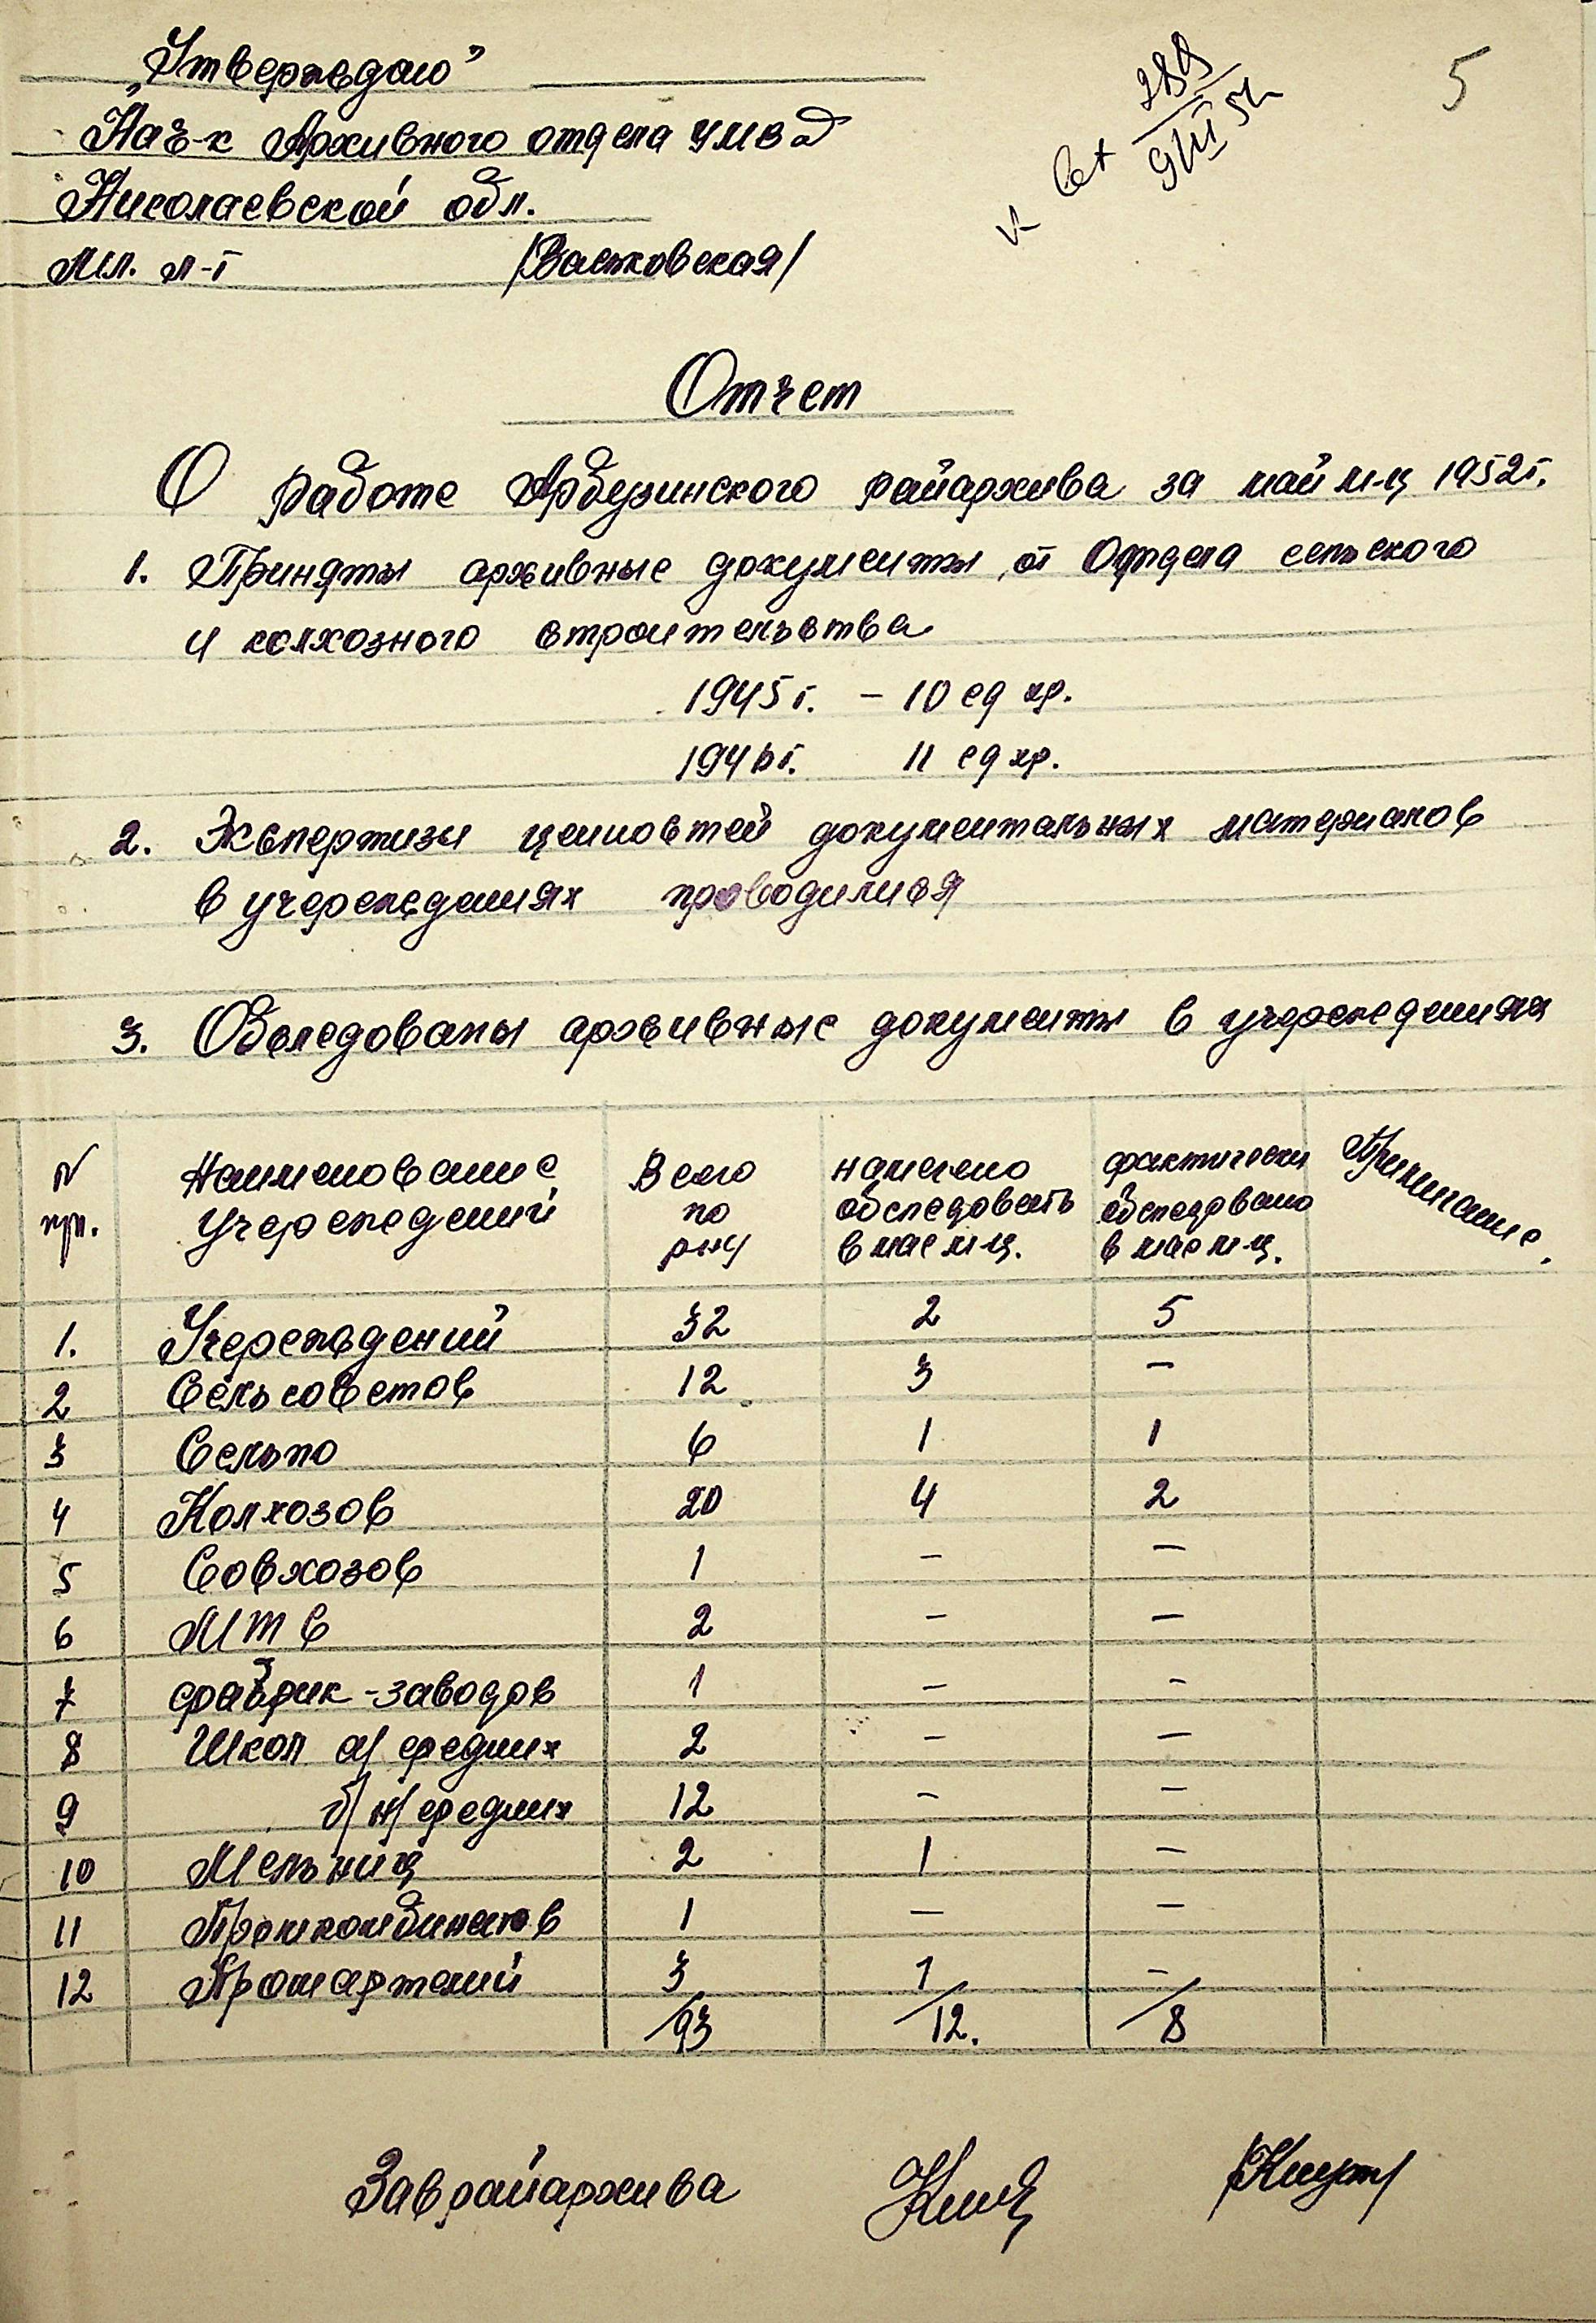 „Утверждаю”
Нач-к Архивного отдела УМВД
Николаевской обл.
Мл. л-т /Васьковская/
вх 289
5
Отчет
О работе Арбузинского райархива за май м-ц 1952 г.
1. Приняты архивные документы от Отдела сельского
и колхозного строительства
1945 г. – 10 ед хр.
1946 г. 11 ед хр.
2. Экспертизы ценностей документальных материалов
в учереждениях проводилися
3. Обследованы архивные документы в учереждениях
N пп. Наименование учереждений Всего по р-ну намечено обследовать в мае м-ц. фактически обследовано в мае м-ц. Примичание.
1. Учереждений 32 2 5
2 Сельсоветов 12 3 –
3 Сельпо 6 1 1
4 Колхозов 20 4 2
5 Совхозов 1 – –
6 МТС 2 – –
7 фабрик-заводов 1 – –
8 Школ а/ средних 2 – –
9 б/ н/средних 12 – –
10 Мельниц 2 1 –
11 Промкомбинатов 1 – –
12 Промартелий 3 1 –
93 12. 8
Зав райархива